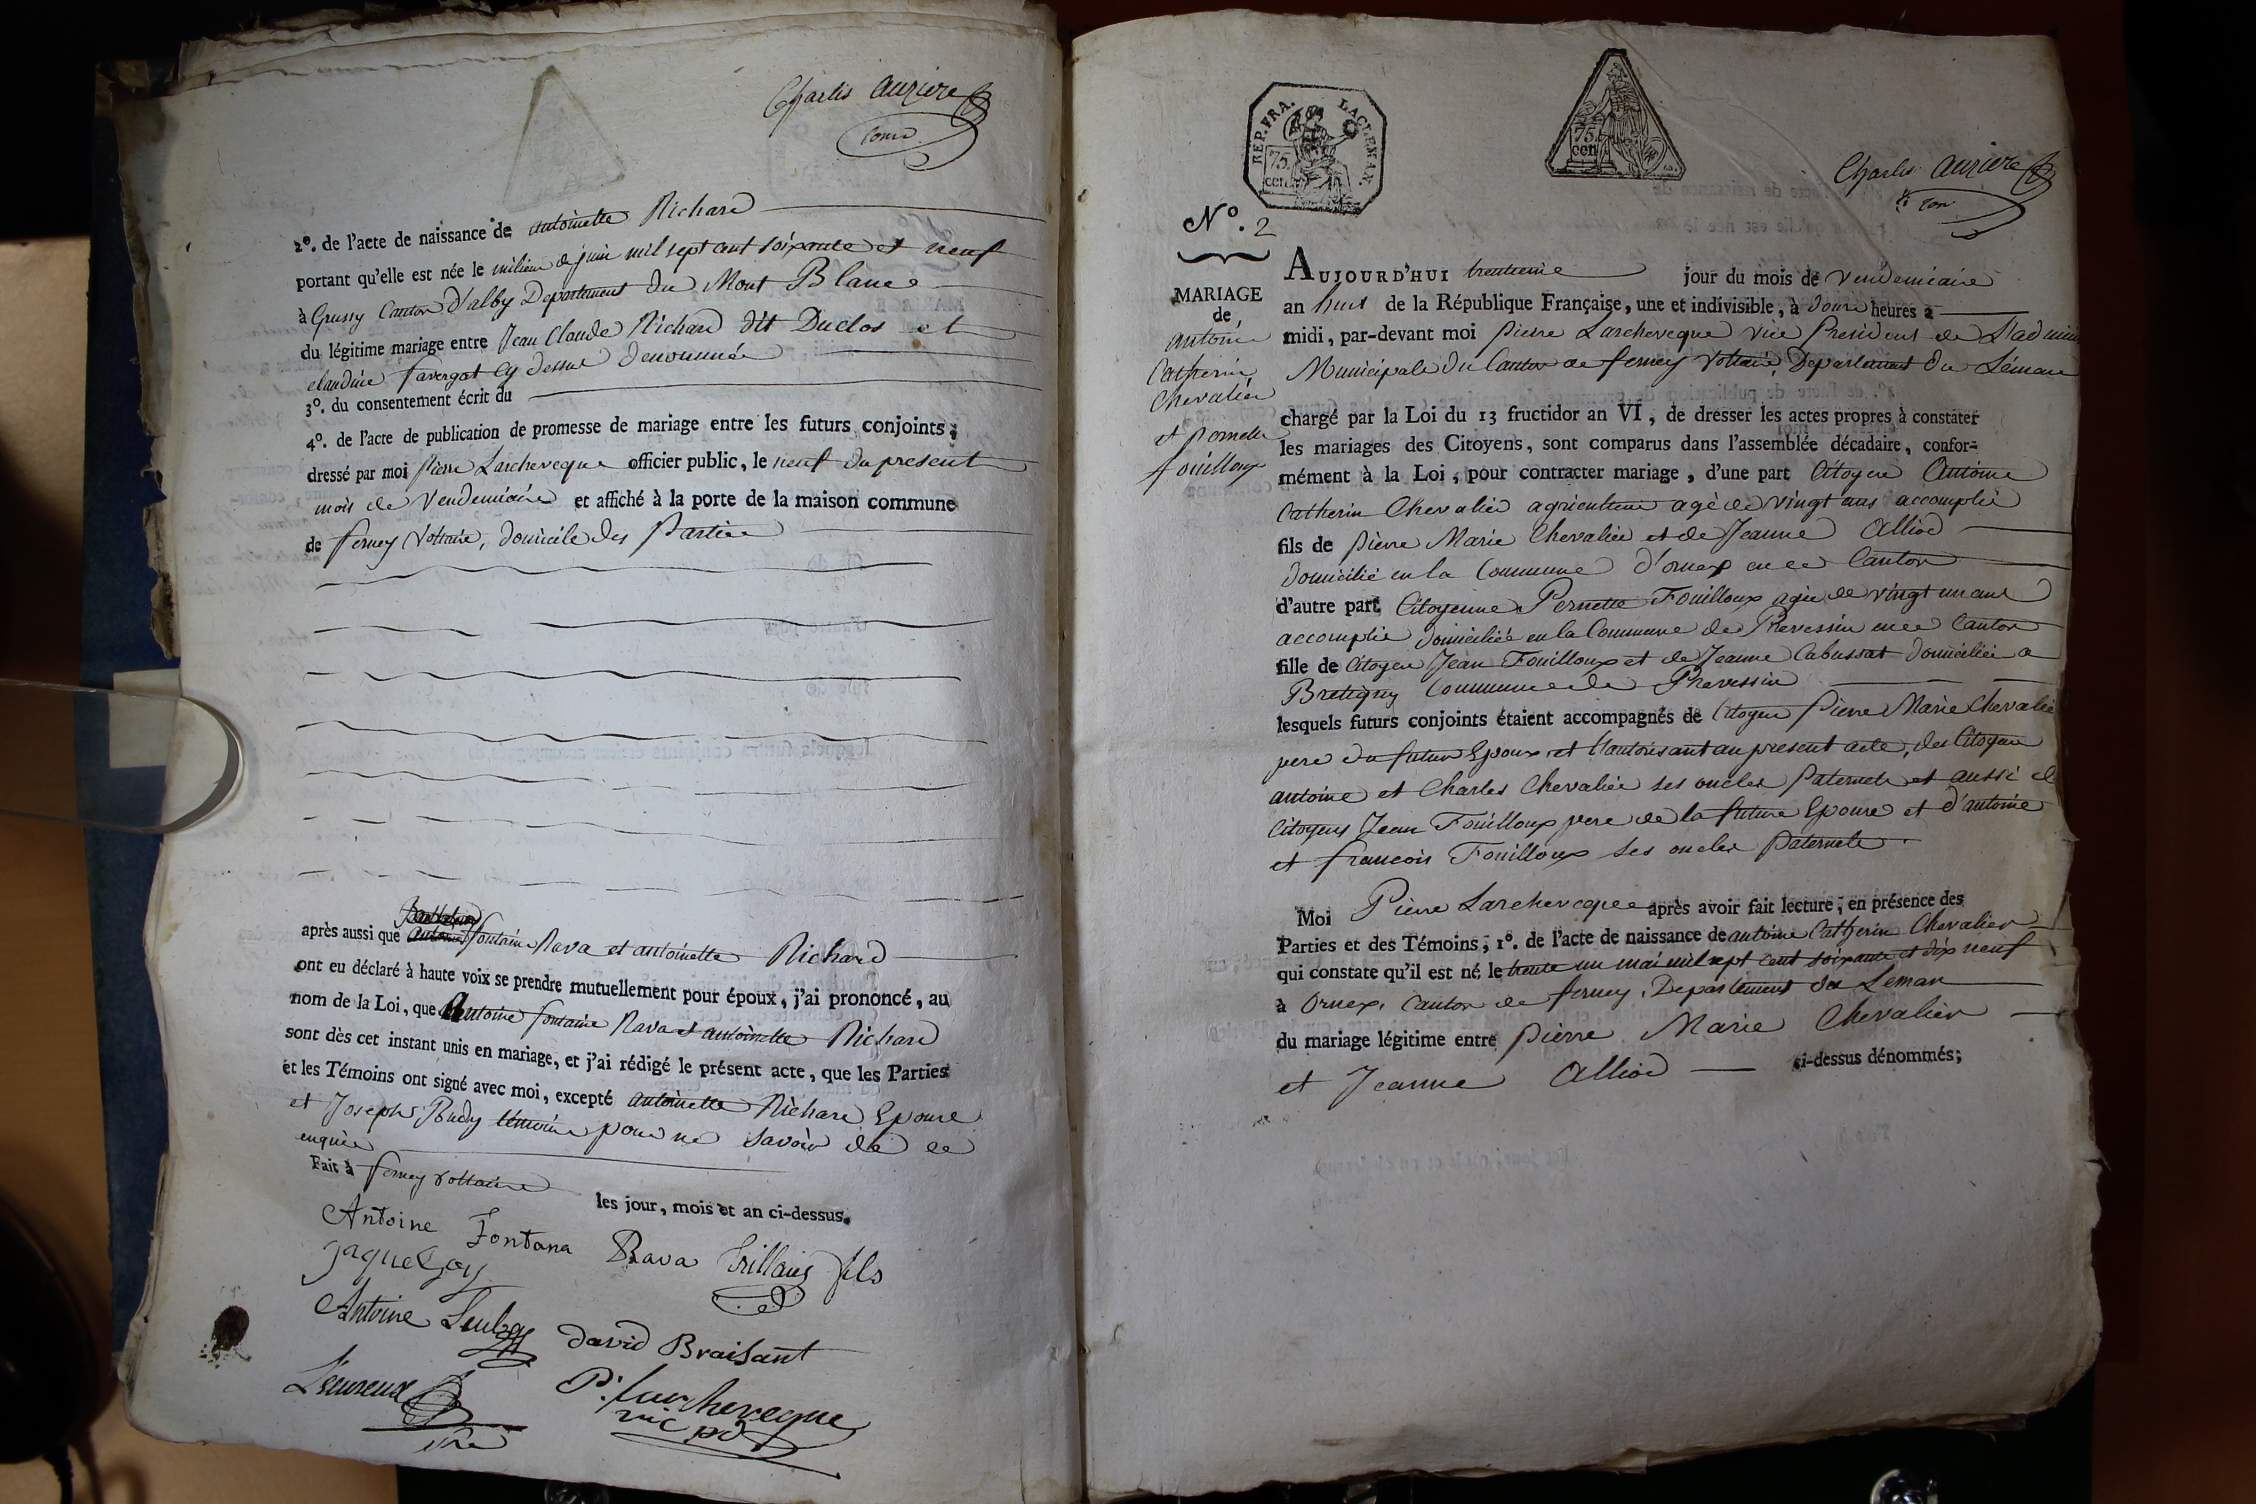 Charles auziere
2º. de l'acte de naissance de antoinette Richard
portant qu'elle est née le milieu de juin mil sept cent soixante et neuf
à Grussy Canton d'alby Departement du Mont Blanc
du légitime mariage entre Jean Claude Richard dit Duclos et
claudine favergat cy dessus denommée
3º. du consentement écrit du
4º. de l'acte de publication de promesse de mariage entre les futurs conjoints,
dressé par moi Pierre Larcheveque officier public, le neuf du present
mois de Vendemiaire et affiché à la porte de la maison commune
de ferney Voltaire, domicile des Parties
après aussi que fontaine Rava et antoinette Richard
ont eu déclaré à haute voix se prendre mutuellement pour époux, j'ai prononcé, au
nom de la Loi, que Antoine fontaine Rava et antoinette Richard
sont dès cet instant unis en mariage, et j'ai rédigé le présent acte, que les Parties
et les Témoins ont signé avec moi, excepté antoinette Richard Epouse
et Joseph Budy témoins pour ne savoir de ce
enquise
Fait à ferney voltaire les jour, mois et an ci-dessus.
Antoine Fontana Rava fils
Antoine
David Braisant
P. Larcheveque
vice pdt
REP. FRA. 75. cen.
75 cen
Charles auziere
Nº. 2
MARIAGE
de
antoine
Catherin
Chevalier
et Pernette
fouilloux
AUJOURD'HUI trentieme jour du mois de Vendemiaire
an huit de la République Française, une et indivisible, à douze heures à
midi, par-devant moi Pierre Larcheveque vice President de L'admin
Municipale du Canton de ferney Voltaire, Departement du Léman
chargé par la Loi du 13 fructidor an VI, de dresser les actes propres à constater
les mariages des Citoyens, sont comparus dans l'assemblée décadaire, confor-
mément à la Loi, pour contracter mariage, d'une part Citoyen Antoine
Catherin Chevalier agriculteur agé de vingt ans accomplis
fils de Pierre Marie Chevalier et de Jeanne Alliod
domicilié en la Commune d'ornex en ce Canton
d'autre part Citoyenne Pernette Fouilloux agée de vingt un ans
accomplis domiciliée en la Commune de Prevessin en ce Canton
fille de Citoyen Jean Fouilloux et de Jeanne Cabussat domiciliés a
Bretigny Commune de Prevessin
lesquels futurs conjoints étaient accompagnés de Citoyen Pierre Marie Chevalier
pere du futur Epoux et L'autorisant au present acte, des Citoyens
antoine et Charles Chevalier ses oncles Paternels et aussi de
Citoyens Jean Fouilloux pere de la future Epouse et d'antoine
et francois Fouilloux ses oncles Paternels.
Moi Pierre Larcheveque après avoir fait lecture, en présence des
Parties et des Témoins, 1º. de l'acte de naissance de antoine Catherin Chevalier
qui constate qu'il est né le trente un mai mil sept cent soixante et dix neuf
à Ornex, Canton de ferney, Departement du Leman
du mariage légitime entre Pierre Marie Chevalier
et Jeanne Alliod ci-dessus dénommés;